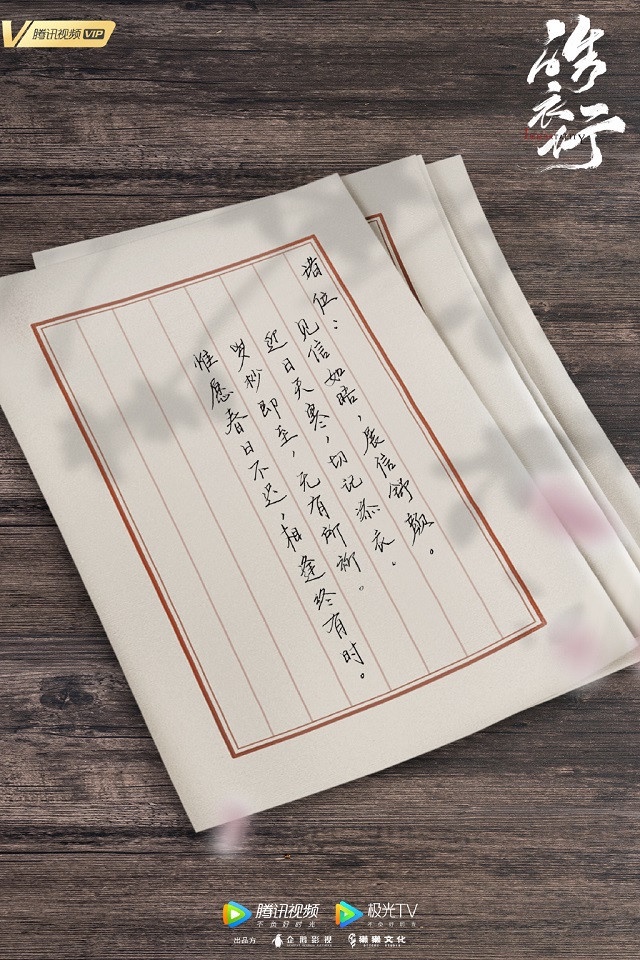 腾讯视频 VIP
皓衣行
诸位：
见信如晤，展信舒颜。
近日天寒，切记添衣。
岁杪即至，无有所御。
惟愿春日不迟，相逢终有时。
腾讯视频
不负好时光
极光TV
出品方
企鹅影视